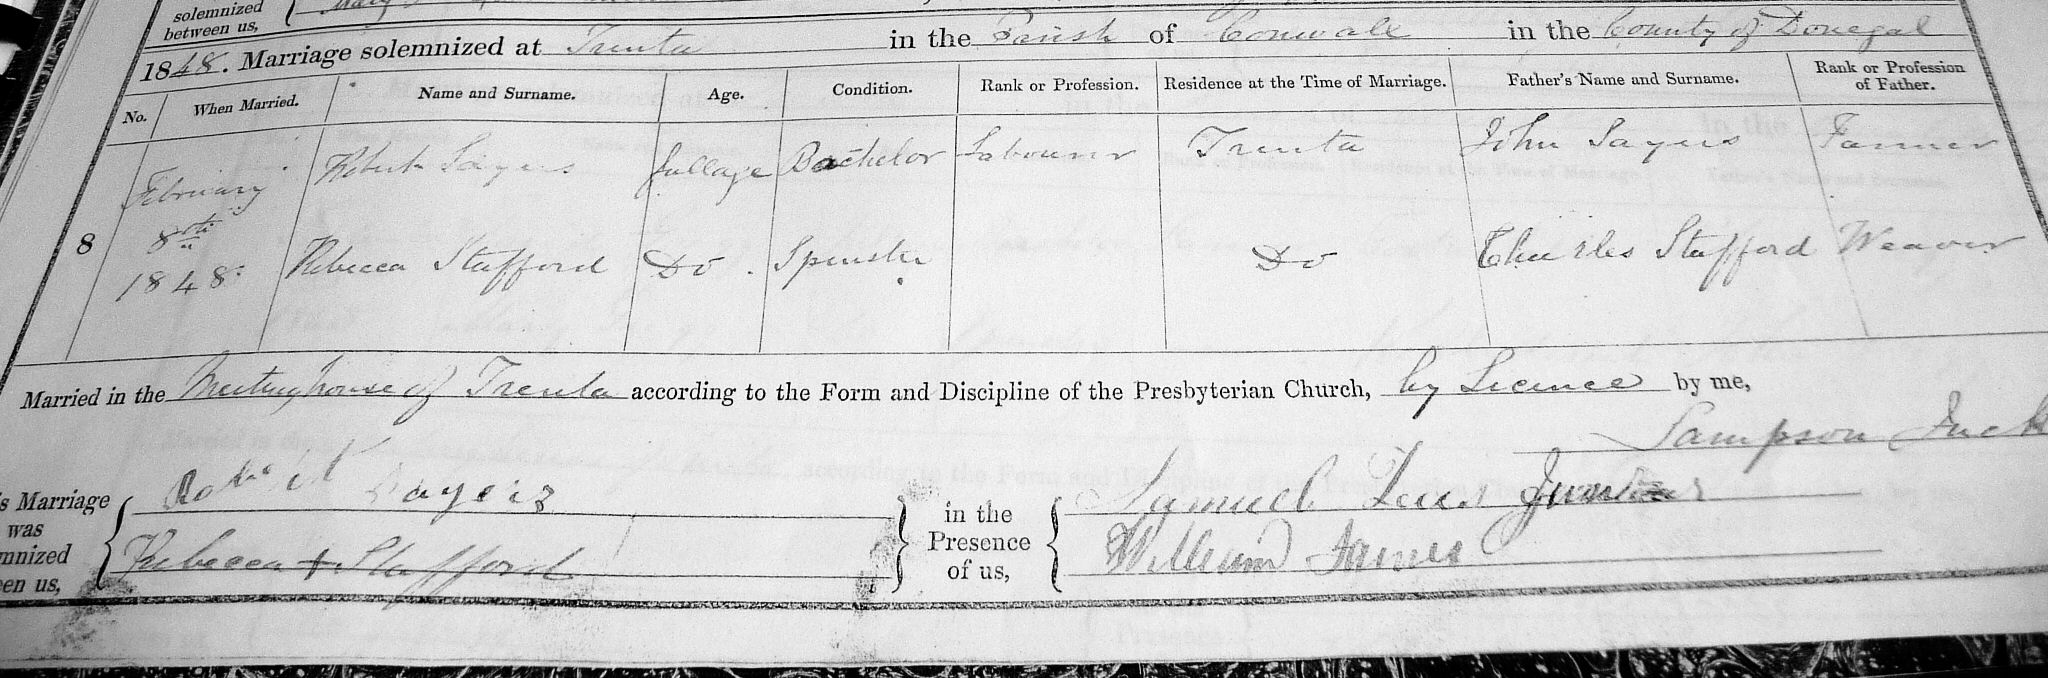 solemnized
between us,
1848. Marriage solemnized at Trenta in the Parish of Conwall in the County of Donegal
No. When Married. Name and Surname. Age. Condition. Rank or Profession. Residence at the Time of Marriage. Father's Name and Surname. Rank or Profession of Father.
8 February 8th 1848. Robert Sayers full age Bachelor Labourer Trenta John Sayers Farmer
Rebecca Stafford Do. Spinster Do Charles Stafford Weaver
Married in the Meetinghouse of Trenta according to the Form and Discipline of the Presbyterian Church, by Licence by me,
Sampson Jack
s Marriage
was
mnized
en us,
Robert Sayers
Rebecca + Stafford
in the
Presence
of us,
Samuel Junior
William James